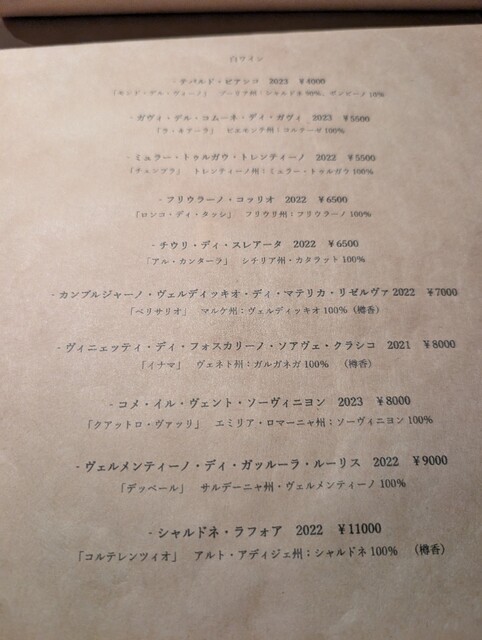 白ワイン
- テバルド・ビアンコ 2023 ¥4000
「モンド・デル・ヴィーノ」 プーリア州：シャルドネ 90%、ボンビーノ 10%
- ガヴィ・デル・コムーネ・ディ・ガヴィ 2023 ¥5500
「ラ・キアーラ」 ピエモンテ州：コルテーゼ 100%
- ミュラー・トゥルガウ・トレンティーノ 2022 ¥5500
「チェンブラ」 トレンティーノ州：ミュラー・トゥルガウ 100%
- フリウラーノ・コッリオ 2022 ¥6500
「ロンコ・ディ・タッシ」 フリウリ州：フリウラーノ 100%
- チウリ・ディ・スレアータ 2022 ¥6500
「アル・カンターラ」 シチリア州・カタラット 100%
- カンブルジャーノ・ヴェルディッキオ・ディ・マテリカ・リゼルヴァ 2022 ¥7000
「ベリサリオ」 マルケ州：ヴェルディッキオ 100%（樽香）
- ヴィニェッティ・ディ・フォスカリーノ・ソアヴェ・クラシコ 2021 ¥8000
「イナマ」 ヴェネト州：ガルガネガ 100% （樽香）
- コメ・イル・ヴェント・ソーヴィニヨン 2023 ¥8000
「クアットロ・ヴァッリ」 エミリア・ロマーニャ州：ソーヴィニヨン 100%
- ヴェルメンティーノ・ディ・ガッルーラ・ルーリス 2022 ¥9000
「デッペール」 サルデーニャ州・ヴェルメンティーノ 100%
- シャルドネ・ラフォア 2022 ¥11000
「コルテレンツィオ」 アルト・アディジェ州；シャルドネ 100% （樽香）